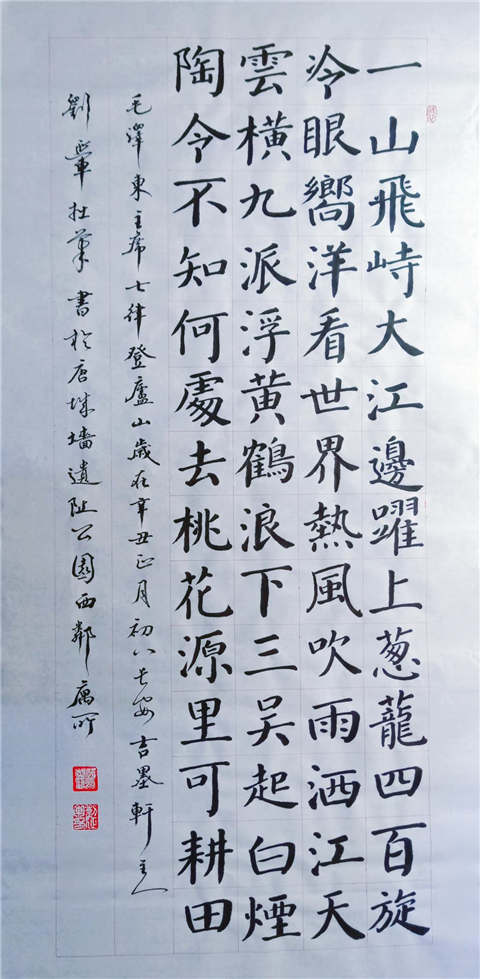 一山飛峙大江邊躍上葱蘢四百旋
冷眼嚮洋看世界熱風吹雨洒江天
雲橫九派浮黄鶴浪下三吴起白煙
陶令不知何處去桃花源里可耕田
毛澤東主席七律登廬山歲在辛丑正月初八長安吉墨軒主人
劉拙筆書於唐城墻遺址公園西鄰寓所